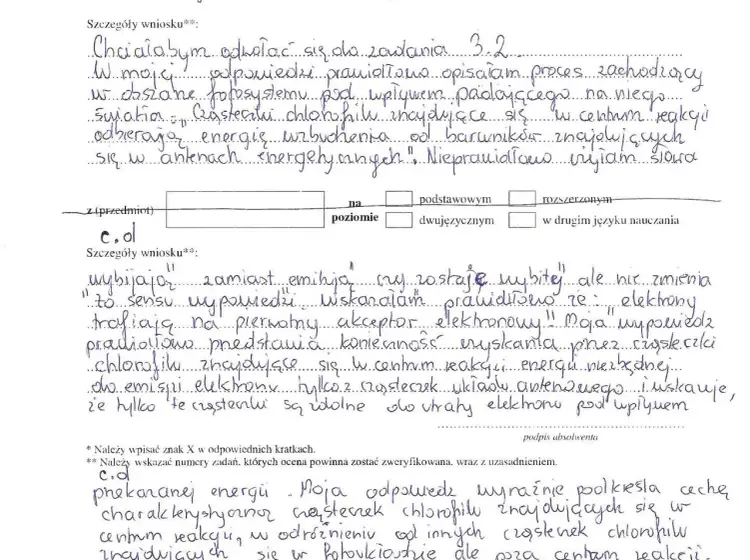 Szczegóły wniosku**:
Chciałabym odwołać się do zadania 3.2
W mojej odpowiedzi prawidłowo opisałam proces zachodzący
w obszarze fotosystemu pod wpływem padającego na niego
światła: „Cząsteczki chlorofilu znajdujące się w centrum reakcji
odbierają energię wzbudzenia od barwników znajdujących
się w antenach energetycznych". Nieprawidłowo użyłam słowa
z (przedmiot) na poziomie podstawowym rozszerzonym
dwujęzycznym w drugim języku nauczania
c.d
Szczegóły wniosku**:
wybijają" zamiast emitują" czy zostaję wybitej" ale nie zmienia
"to sensu wypowiedzi. Wskazałam prawidłowo że: elektrony
trafiają na pierwotny akceptor elektronowy". Moja wypowiedź
prawidłowo przedstawia konieczność uzyskania przez cząsteczki
chlorofilu znajdujące się w centrum reakcji energii niezbędnej
do emisji elektronu tylko z cząsteczek układu antenowego i wskazuje,
że tylko te cząsteczki są zdolne do utraty elektronu pod wpływem
podpis absolwenta
* Należy wpisać znak X w odpowiednich kratkach.
** Należy wskazać numery zadań, których ocena powinna zostać zweryfikowana, wraz z uzasadnieniem.
c.d
przekazanej energii. Moja odpowiedź wyraźnie podkreśla cechę
charakterystyczną cząsteczek chlorofilu znajdujących się w
centrum reakcji, w odróżnieniu od innych cząsteczek chlorofilu
znajdujących się w fotoukładzie ale poza centrum reakcji.